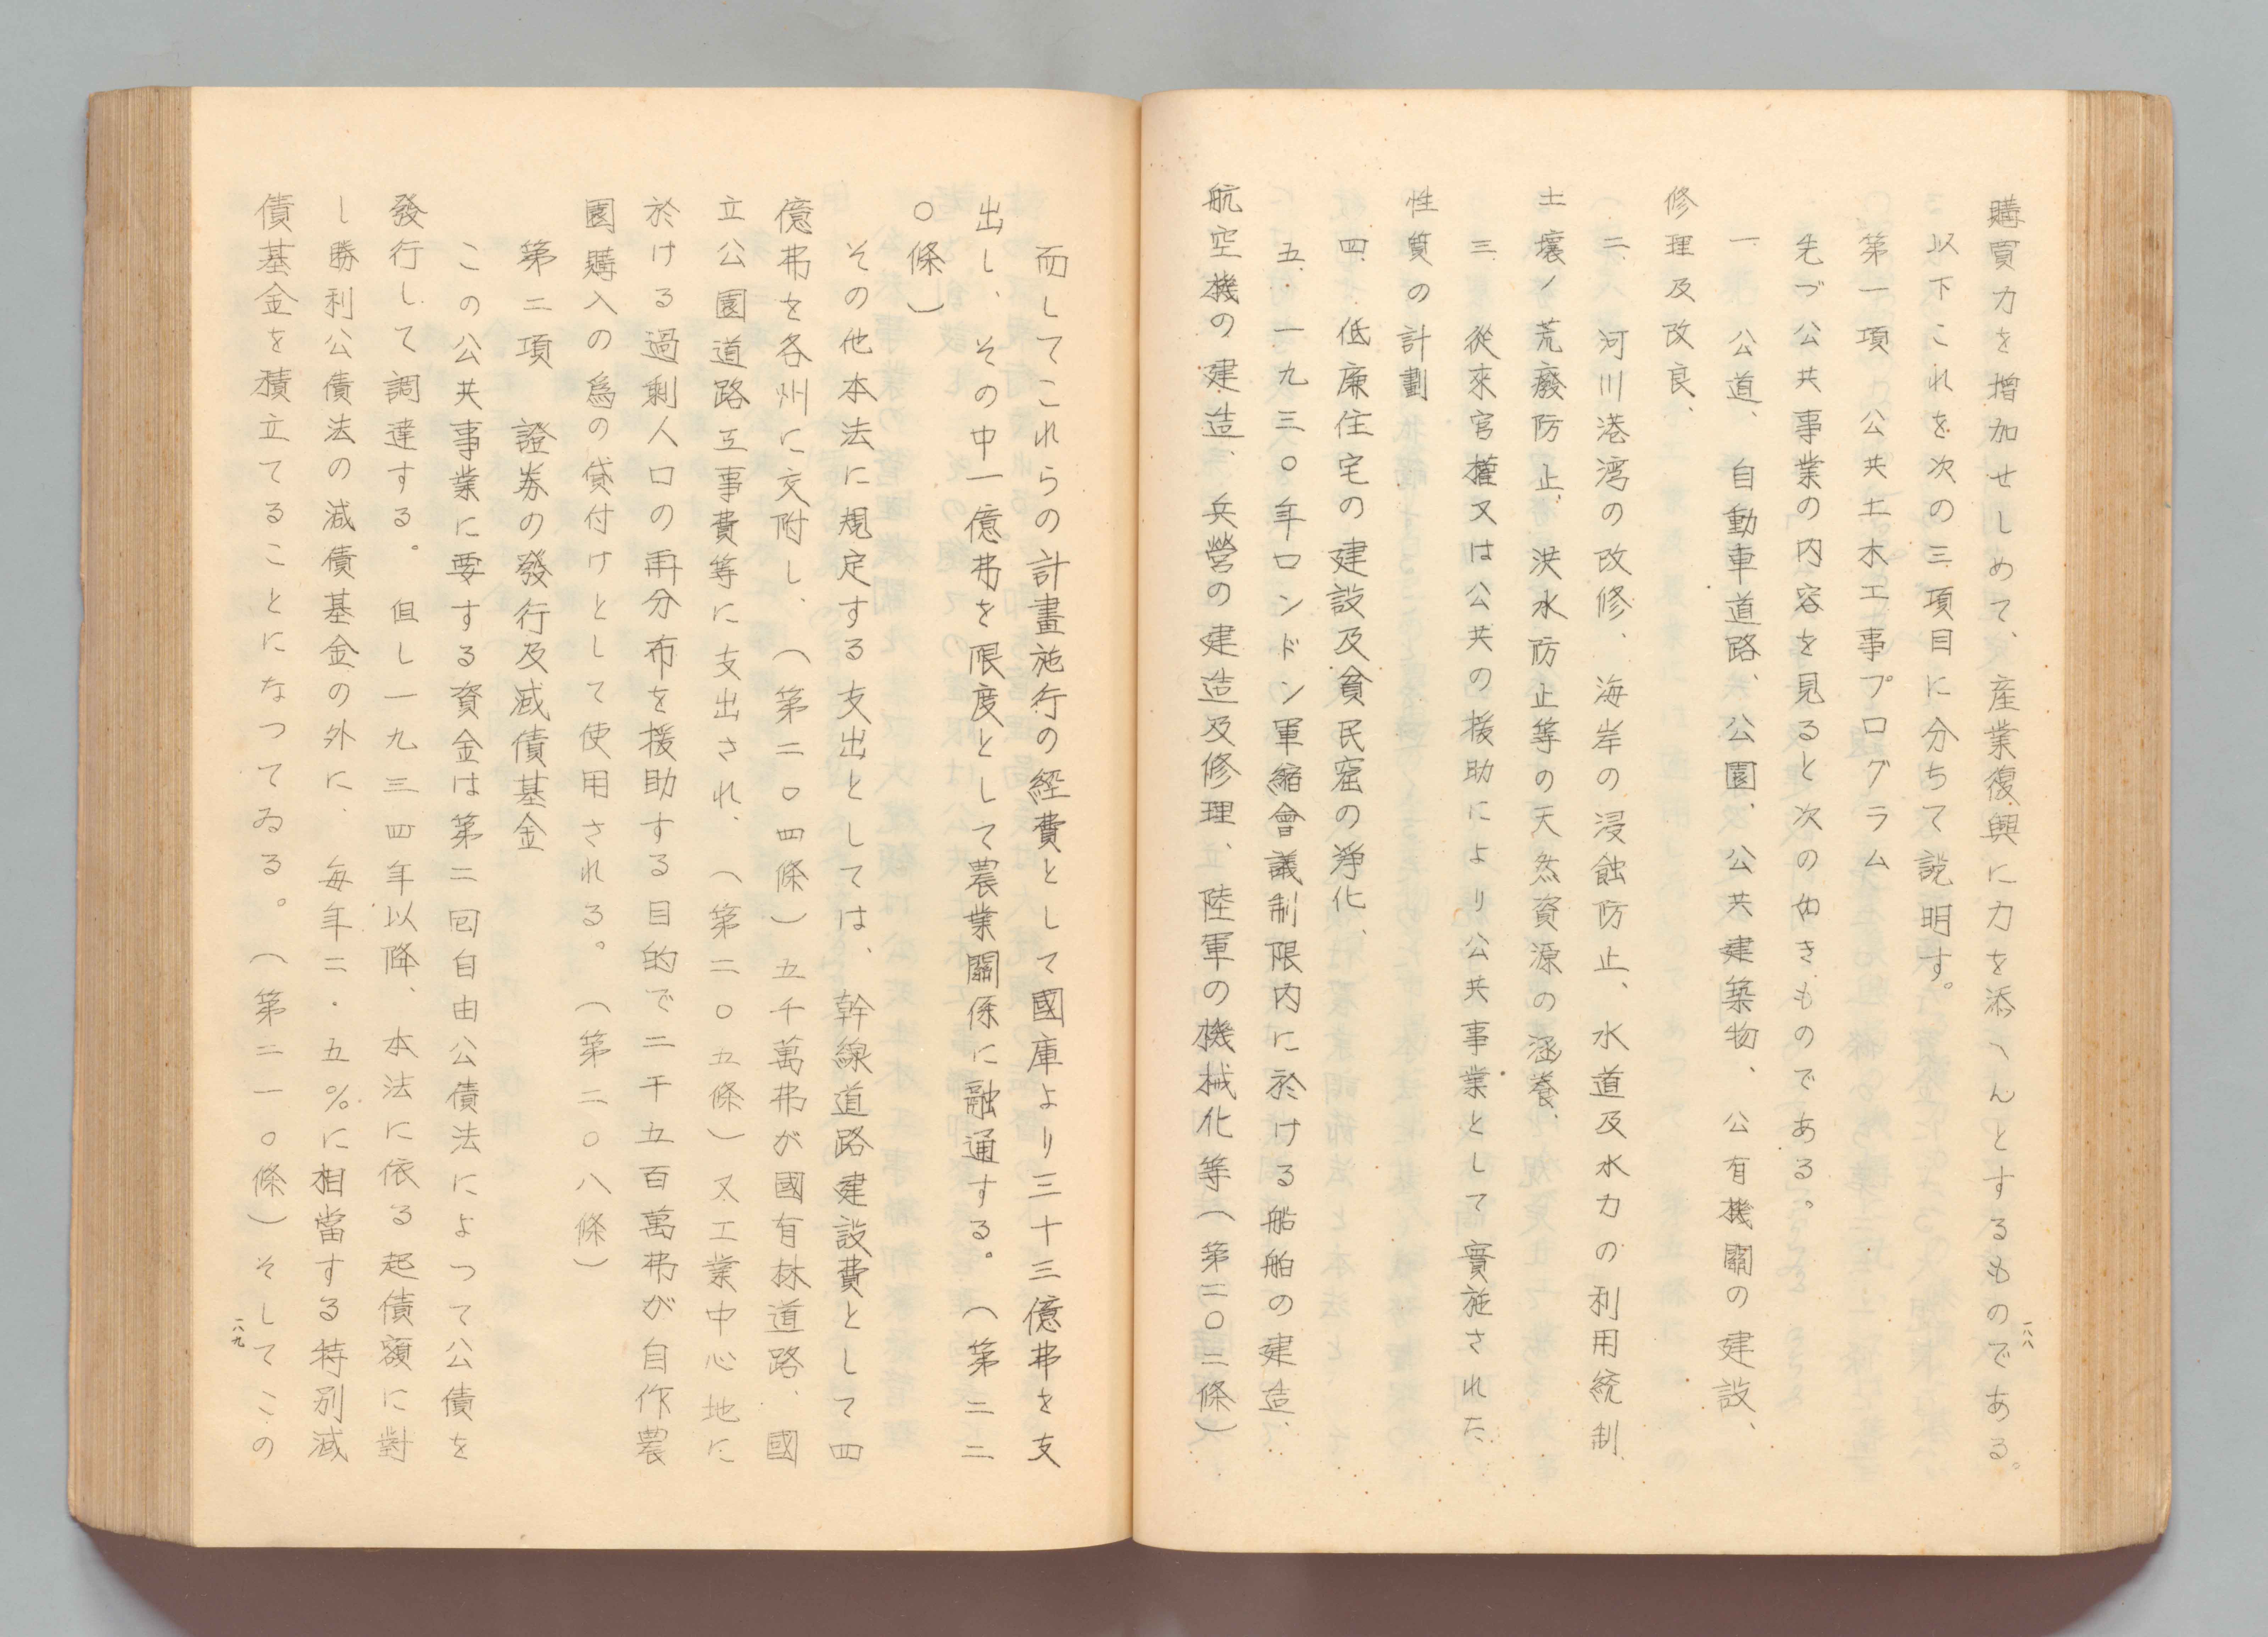 購買力を増加せしめて、産業復興に力を添へんとするものである。
以下これを次の三項目に分ちて説明す。
第一項　公共土木工事プログラム
先づ公共事業の内容を見ると次の如きものである。
一、公道、自動車道路、公園、公共建築物、公有機關の建設、
修理及改良、
二、河川港湾の改修、海岸の浸蝕防止、水道及水力の利用統制
土壤ノ荒廢防止、洪水防止等の天然資源の涵養、
三、從來官權又は公共の援助により公共事業として實施された
性質の計劃
四、低廉住宅の建設及貧民窟の淨化、
五、一九三〇年ロンドン軍縮會議制限内に於ける船舶の建造、
航空機の建造、兵營の建造及修理、陸軍の機械化等（第二〇二條）
一八八
而してこれらの計畫施行の経費として國庫より三十三億弗を支
出し、その中一億弗を限度として農業關係に融通する。（第二二
〇條）
その他本法に規定する支出としては、幹線道路建設費として四
億弗を各州に交附し、（第二〇四條）五千萬弗が國有林道路、國
立公園道路工事費等に支出され、（第二〇五條）又工業中心地に
於ける過剰人口の再分布を援助する目的で二千五百萬弗が自作農
園購入の爲の貸付けとして使用される。（第二〇八條）
第二項　證券の發行及減債基金
この公共事業に要する資金は第二回自由公債法によつて公債を
發行して調達する。但し一九三四年以降、本法に依る起債額に對
し勝利公債法の減債基金の外に、毎年二・五％に相當する特別減
債基金を積立てることになつてゐる。（第二一〇條）そしてこの
一八九